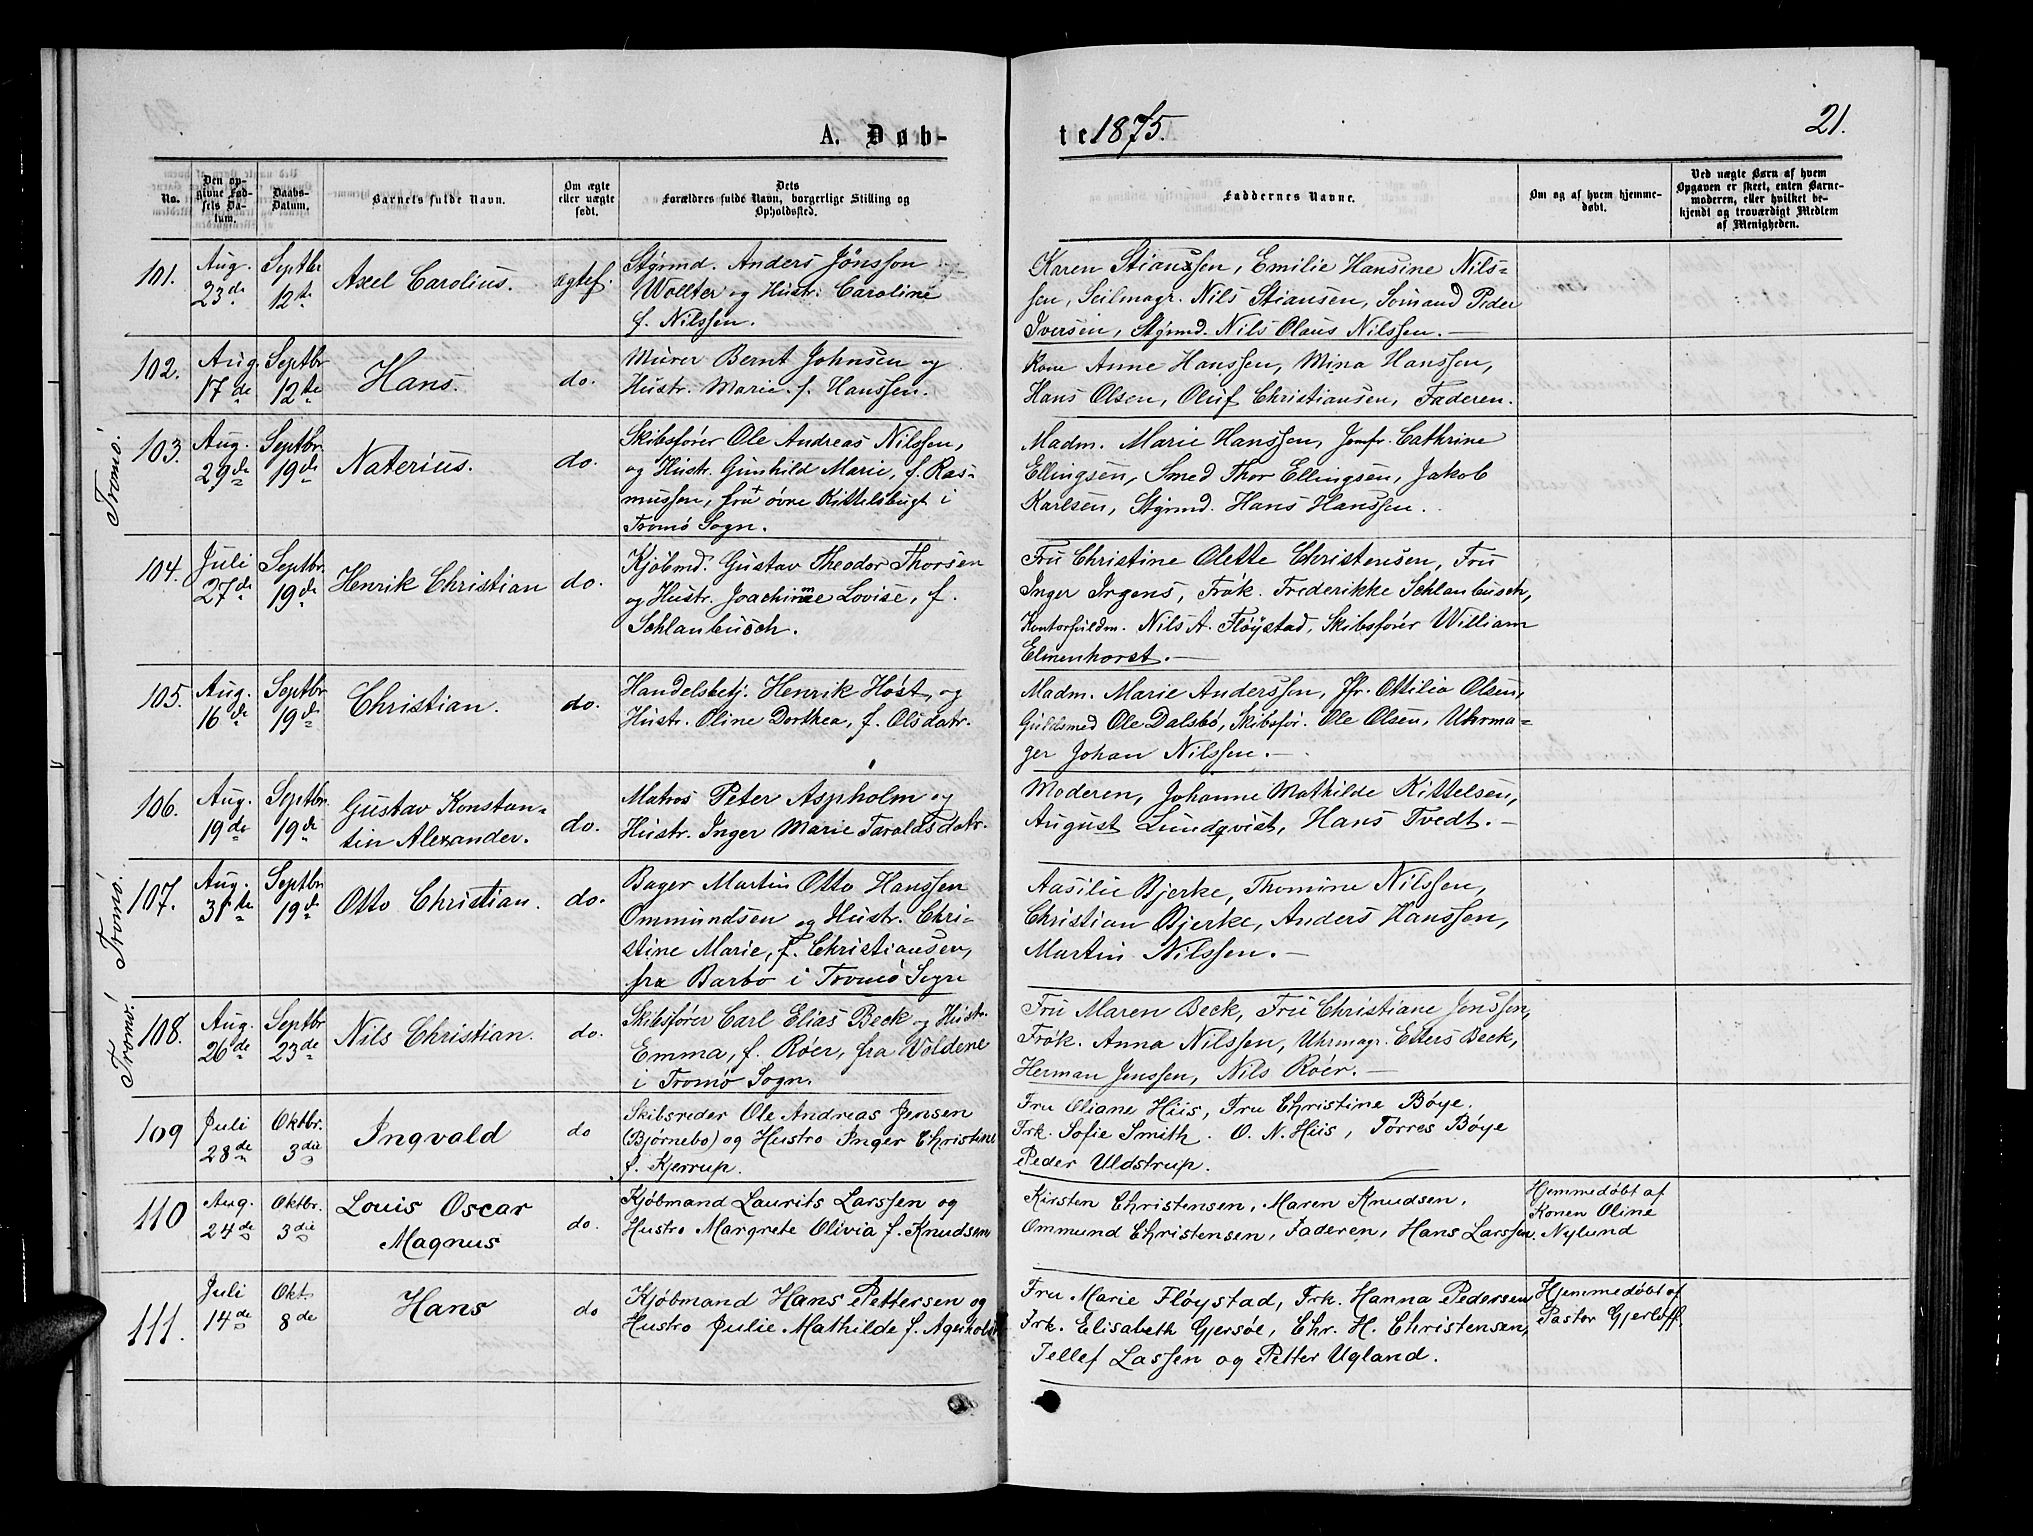 A. Døb-
te 1875.
21.
No.
Den op-
givne Fød-
sels Da-
tum.
Daabs-
Datum.
Barnets fulde Navn.
Om ægte
eller uægte
født.
Dets
Forældres fulde Navn, borgerlige Stilling og
Opholdssted.
Faddernes Navne.
Om og af hvem hjemme-
døbt.
Ved uægte Børn af hvem
Opgaven er skeet, enten Barne-
moderen, eller hvilket be-
kjendt og troværdigt Medlem
af Menigheden.
101.
Aug.
23de
Septbr
12te
Axel Carolius.
ægtef.
Styrmd. Anders Jönsson
Wollter og Hustr: Caroline
f. Nilssen.
Karen Stianssen, Emilie Hansine Nils-
sen, Seilmagr. Nils Stiansen, Sömand Peder
Iversen, Styrmd. Nils Olaus Nilssen.
102.
Aug.
17de
Septbr
12te
Hans.
do.
Murer Bernt Johnsen og
Hustr. Marie f. Hanssen.
Kone Anne Hanssen, Mina Hanssen,
Hans Olsen, Oluf Christiansen, Faderen.
Tromö.
103.
Aug.
29de
Septbr.
19de
Naterius.
do.
Skibsfører Ole Andreas Nilssen,
og Hustr. Gunhild Marie, f. Ras-
mussen, fra øvre Kittelsbugt i
Tromö Sogn.
Madm. Marie Hanssen, Jomfr. Cathrine
Ellingsen, Smed Thor Ellingsen, Jakob
Karlsen, Styrmd. Hans Hanssen.
104.
Juli
27de
Septbr.
19de
Henrik Christian
do.
Kjöbmd. Gustav Theodor Thorsen
og Hustr. Joachimine Lovise, f.
Schlanbusch.
Fru Christine Olette Christensen, Fru
Inger Irgens, Frøk. Frederikke Schlanbusch,
Kontorfuldm. Nils A. Fløystad, Skibsfører William
Elmenhorst.
105.
Aug.
16de
Septbr
19de
Christian.
do.
Handelsbetj. Henrik Høst og
Hustr. Oline Dorthea, f. Olsdatr.
Madm. Marie Anderssen, Jfr. Ottilia Olsen,
Guldsmed Ole Dalsbö, Skibsför. Ole Olsen, Uhrma-
ger Johan Nilssen.
106.
Aug.
19de
Septbr.
19de
Gustav Konstan-
tin Alexander.
do.
Matros Peter Aspholm og
Hustr. Inger Marie Taraldsdatr.
Moderen, Johanne Mathilde Kittelsen,
August Lundqvist, Hans Tvedt.
Tromö.
107.
Aug.
31te
Septbr
19de
Otto Christian.
do.
Bager Martin Otto Hanssen
Ommundsen og Hustr. Chri-
stine Marie, f. Christiansen,
fra Barbo i Tromö Sogn
Aasilie Bjerke, Thomine Nilssen,
Christian Bjerke, Anders Hanssen,
Martin Nilssen.
Tromö.
108.
Aug.
26de
Septbr
23de
Nils Christian.
do.
Skibsfører Carl Elias Beck og Hustr.
Emma, f. Röer, fra Voldene
i Tromö Sogn.
Fru Maren Beck, Fru Christiane Jenssen,
Frøk. Anna Nilssen, Uhrmagr. Esters Beck,
Herman Jenssen, Nils Roër.
109
Juli
28de
Oktbr.
3die
Ingvald
do
Skibsreder Ole Andreas Jensen
(Bjørnebo) og Hustro Inger Christine
f. Kjerrup.
Fru Oliane Hiis, Fru Christine Bøye.
Frk. Sofie Smith. O. N. Hiis, Tørres Bøye
Peder Uldstrup.
110
Aug.
24de
Oktbr.
3die
Louis Oscar
Magnus
do.
Kjøbmand Laurits Larssen og
Hustro Margrete Olivia f. Knudsen
Kirsten Christensen, Maren Knudsen.
Ommund Christensen, Faderen, Hans Larssen.
Hjemmedøbt af
Konen Oline
Nylund
111.
Juli
14de
Okt.
8de
Hans
do
Kjøbmand Hans Pettersen og
Hustro Julie Mathilde f. Agerholdt
Fru Marie Fløystad, Frk. Hanna Pedersen
Frk. Elisabeth Gjersøe, Chr. H. Christensen,
Tellef Lassen og Petter Ugland.
Hjemmedøbt af
Pastor Gjerløff